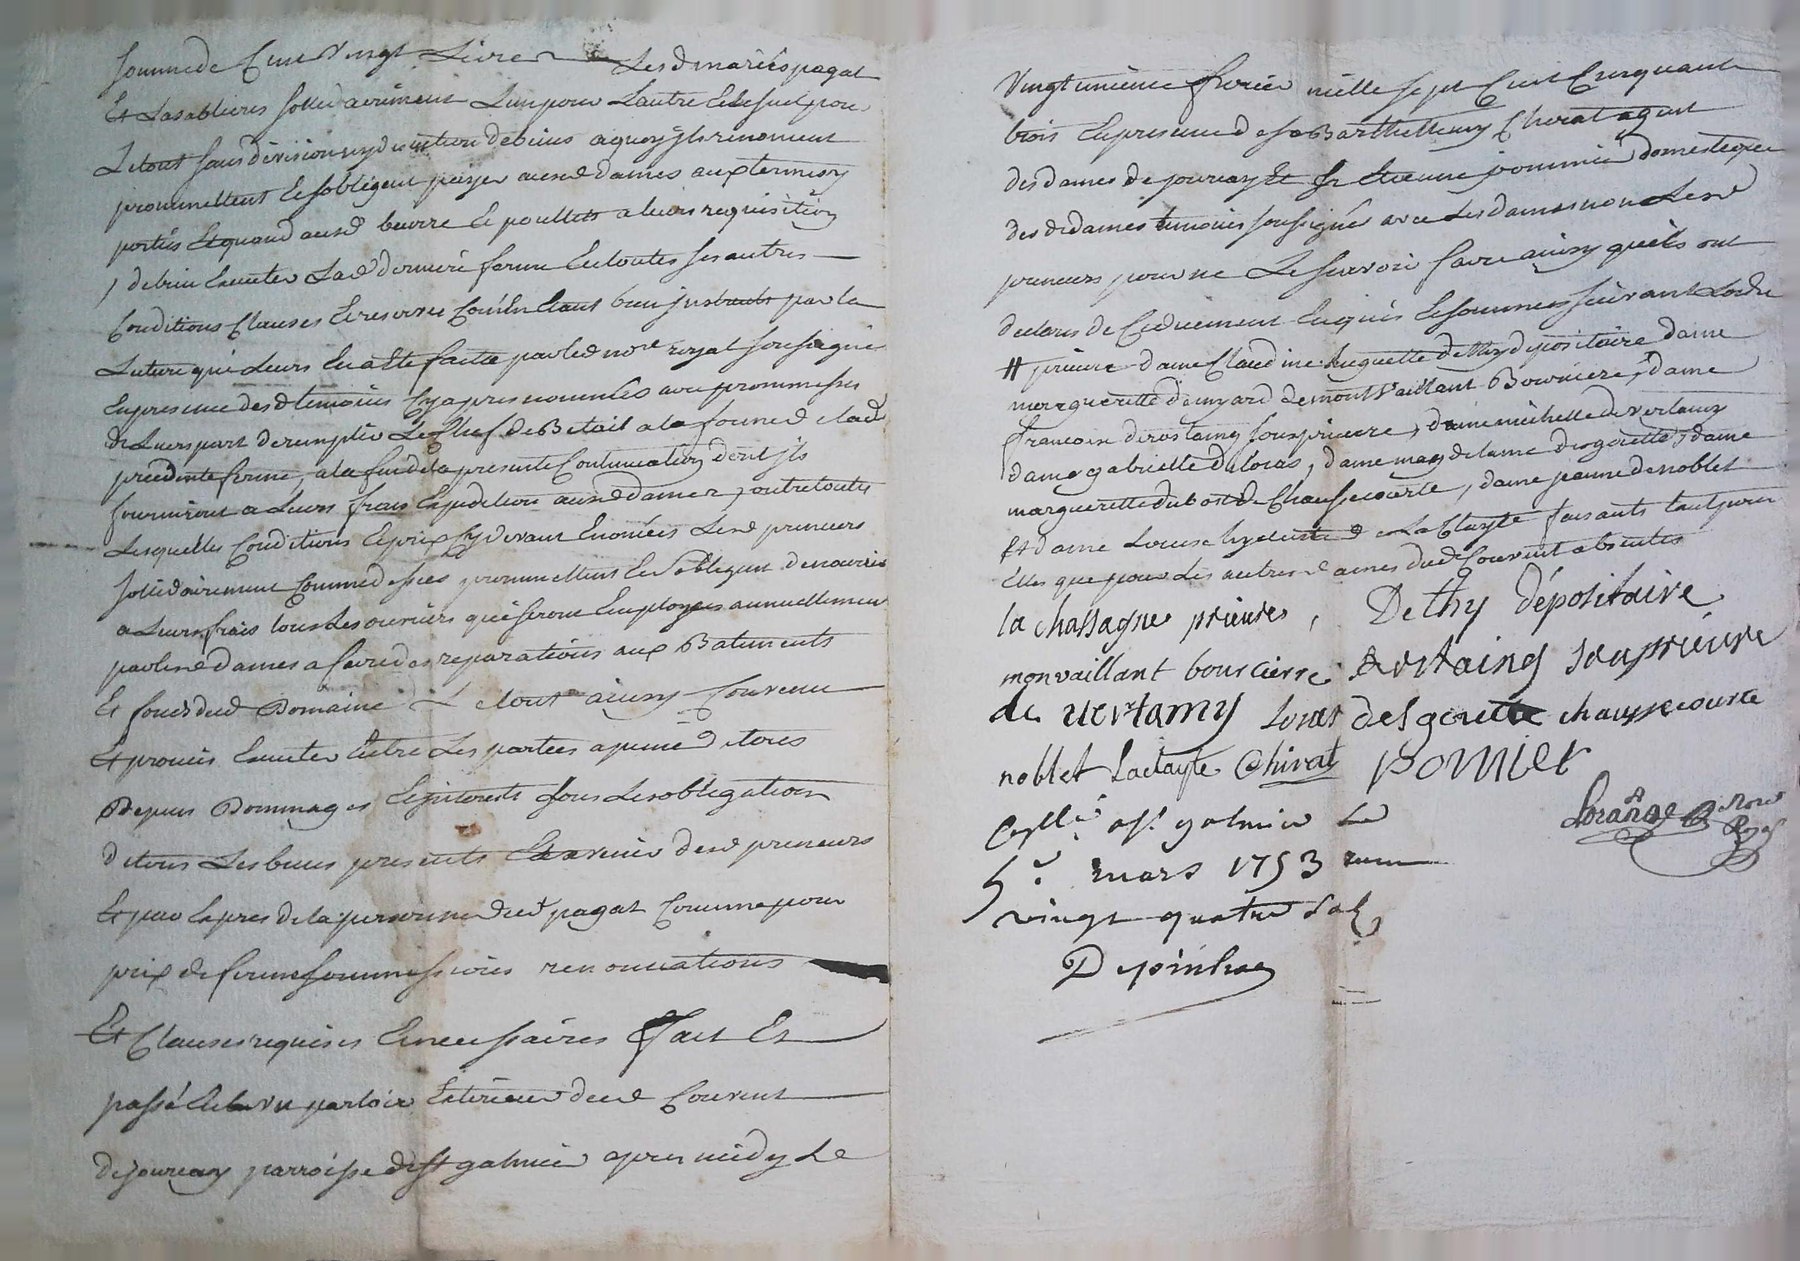 somme de Cent vingt Livres Lesd mariés pagat
Et Lasablieres sollidairement Lun pour Lautre Et Le seul pour
Le tout sans division ny de biens a quoy ils renoncent
promettent Et sobligent payer auxd dames aux termes
portés Et quand auxd beurre Et poullets a leurs requisition
de bien Executer Lad derniere ferme En toutes ses autres
Conditions Clauses Et reserves dont bien instruits par la
Lecture qui Leurs En a Eté faitte par led no.re royal soussigné
En presence desd temoins Cy apres nommés avec prommesses
de Leurs part de remplir Le Chef de Betail a la forme de lad
precedente ferme, a la fin de la presente Continuation dont ils
fourniront a Leurs frais Expedition auxd dames, outre toutes
Lesquelles Conditions Et prix Cy devant Enoncées Lesd preneurs
sollidairement Comme dessus promettent Et sobligent de nourrir
a Leurs frais tous Les ouvriers qui seront Employés annuellement
par lesd dames a faire des reparations aux Batiments
Et fonds dud Domaine Le tout ainsy Convenu
Et promis Executer Entre Les parties a peine de tous
Depens Dommages Et interests sous Les obligations
de tous Les biens presents Et avenir desd preneurs
Et par Expres de la personne dud pagat Comme pour
prix de ferme soummissions renonciations
Et Clauses requises Et necessaires Fait Et
passé au parloir Exterieur dud Couvent
de jourcey parroisse de St galmier apres midy Le
Vingt unieme fevrier mille sept Cent Cinquante
trois En presence de sr Barthellemy Chirat agent
des dames de jourcey Et sr Etienne pommier domestique
desd dames temoins soussignés avec Lesd dames non Lesd
preneurs pour ne Le scavoir faire ainsy quils ont
declaré de Ce Enquis Et sommés suivant Lordre
# prieure dame Claudine huguette dethy depositaire dame
marguerette de montvaillant Boursiere, dame
francoise de rostaing sousprieure, dame michelle de vertamy
dame gabrielle de loras, dame de lame desgouttes, dame
marguerette dubost de Chaussecourte, dame jeanne de noblet
Et dame Louise hyacinte de La Clayte faisants tant pour
Elles que pour Les autres dames dud Couvent absentes
la chassagne prieure, Dethy dépositaire
monvaillant boursière Rostaing souprieure
de vertamy Loras desgoutte chaussecourte
noblet Laclayte Chirat pomier
Lorange Nore Royal
Collé a St galmier Le
5e mars 1753 recu
vingt quatre sols
Depinhac